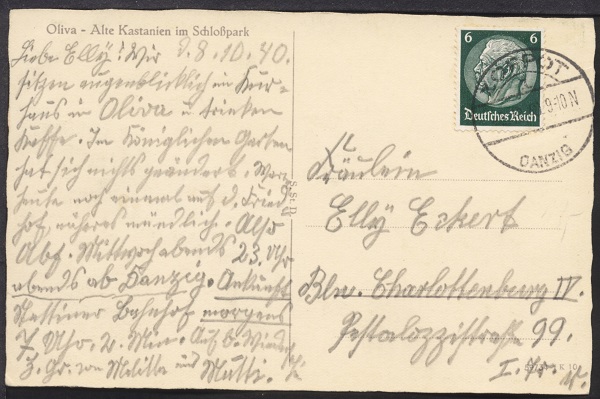 Oliva - Alte Kastanien im Schloßpark
D. 8.10.40.
Liebe Elly! Wir
sitzen augenblicklich im Kur-
haus in Oliva u. trinken
Kaffe. Im Königlichen Garten
hat sich nichts geändert. War
heute noch einmal auf d. Fried-
hof, näheres mündlich. Also
Abf. Mittwoch abends 23. Uhr
abends ab Danzig. Ankunft
Stettiner Bahnhof morgens
7 Uhr, 2. Min. Auf b. Wieders.
Gr. von Melitta u. Mutti.
6
6
Deutsches Reich
ZOPPOT
9-10 N
DANZIG
Fräulein
Elly Eckert
Bln. Charlottenburg IV.
Pestalozzistraße 99.